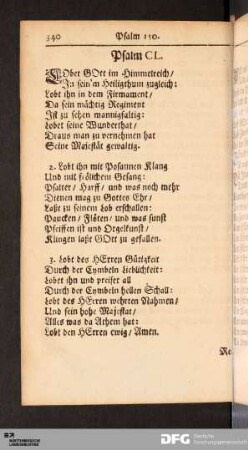 340 Psalm 150.
Psalm CL.
LObet GOtt im Himmelreich/
In sein'm Heiligthum zugleich:
Lobt ihn in dem Firmament/
Da sein mächtig Regiment
Ist zu sehen mannigfaltig:
Lobet seine Wunderthat/
Draus man zu vernehmen hat
Seine Majestät gewaltig.
2. Lobt ihn mit Posaunen Klang
Und mit frölichem Gesang:
Psalter/ Harff/ und was noch mehr
Dienen mag zu Gottes Ehr/
Laßt zu seinem Lob erschallen:
Paucken/ Flöten/ und was sunst
Pfeiffen ist und Orgelkunst/
Klingen laßt GOtt zu gefallen.
3. Lobt des HErren Gütigkeit
Durch der Cymbeln Lieblichkeit:
Lobet ihn und preiset all
Durch der Cymbeln hellen Schall:
Lobt des HErren wehrten Nahmen/
Und sein hohe Majestat/
Alles was da Athem hat:
Lobt den HErren ewig/ Amen.
Re-
WLB
WÜRTTEMBERGISCHE
LANDESBIBLIOTHEK
DFG Deutsche
Forschungsgemeinschaft